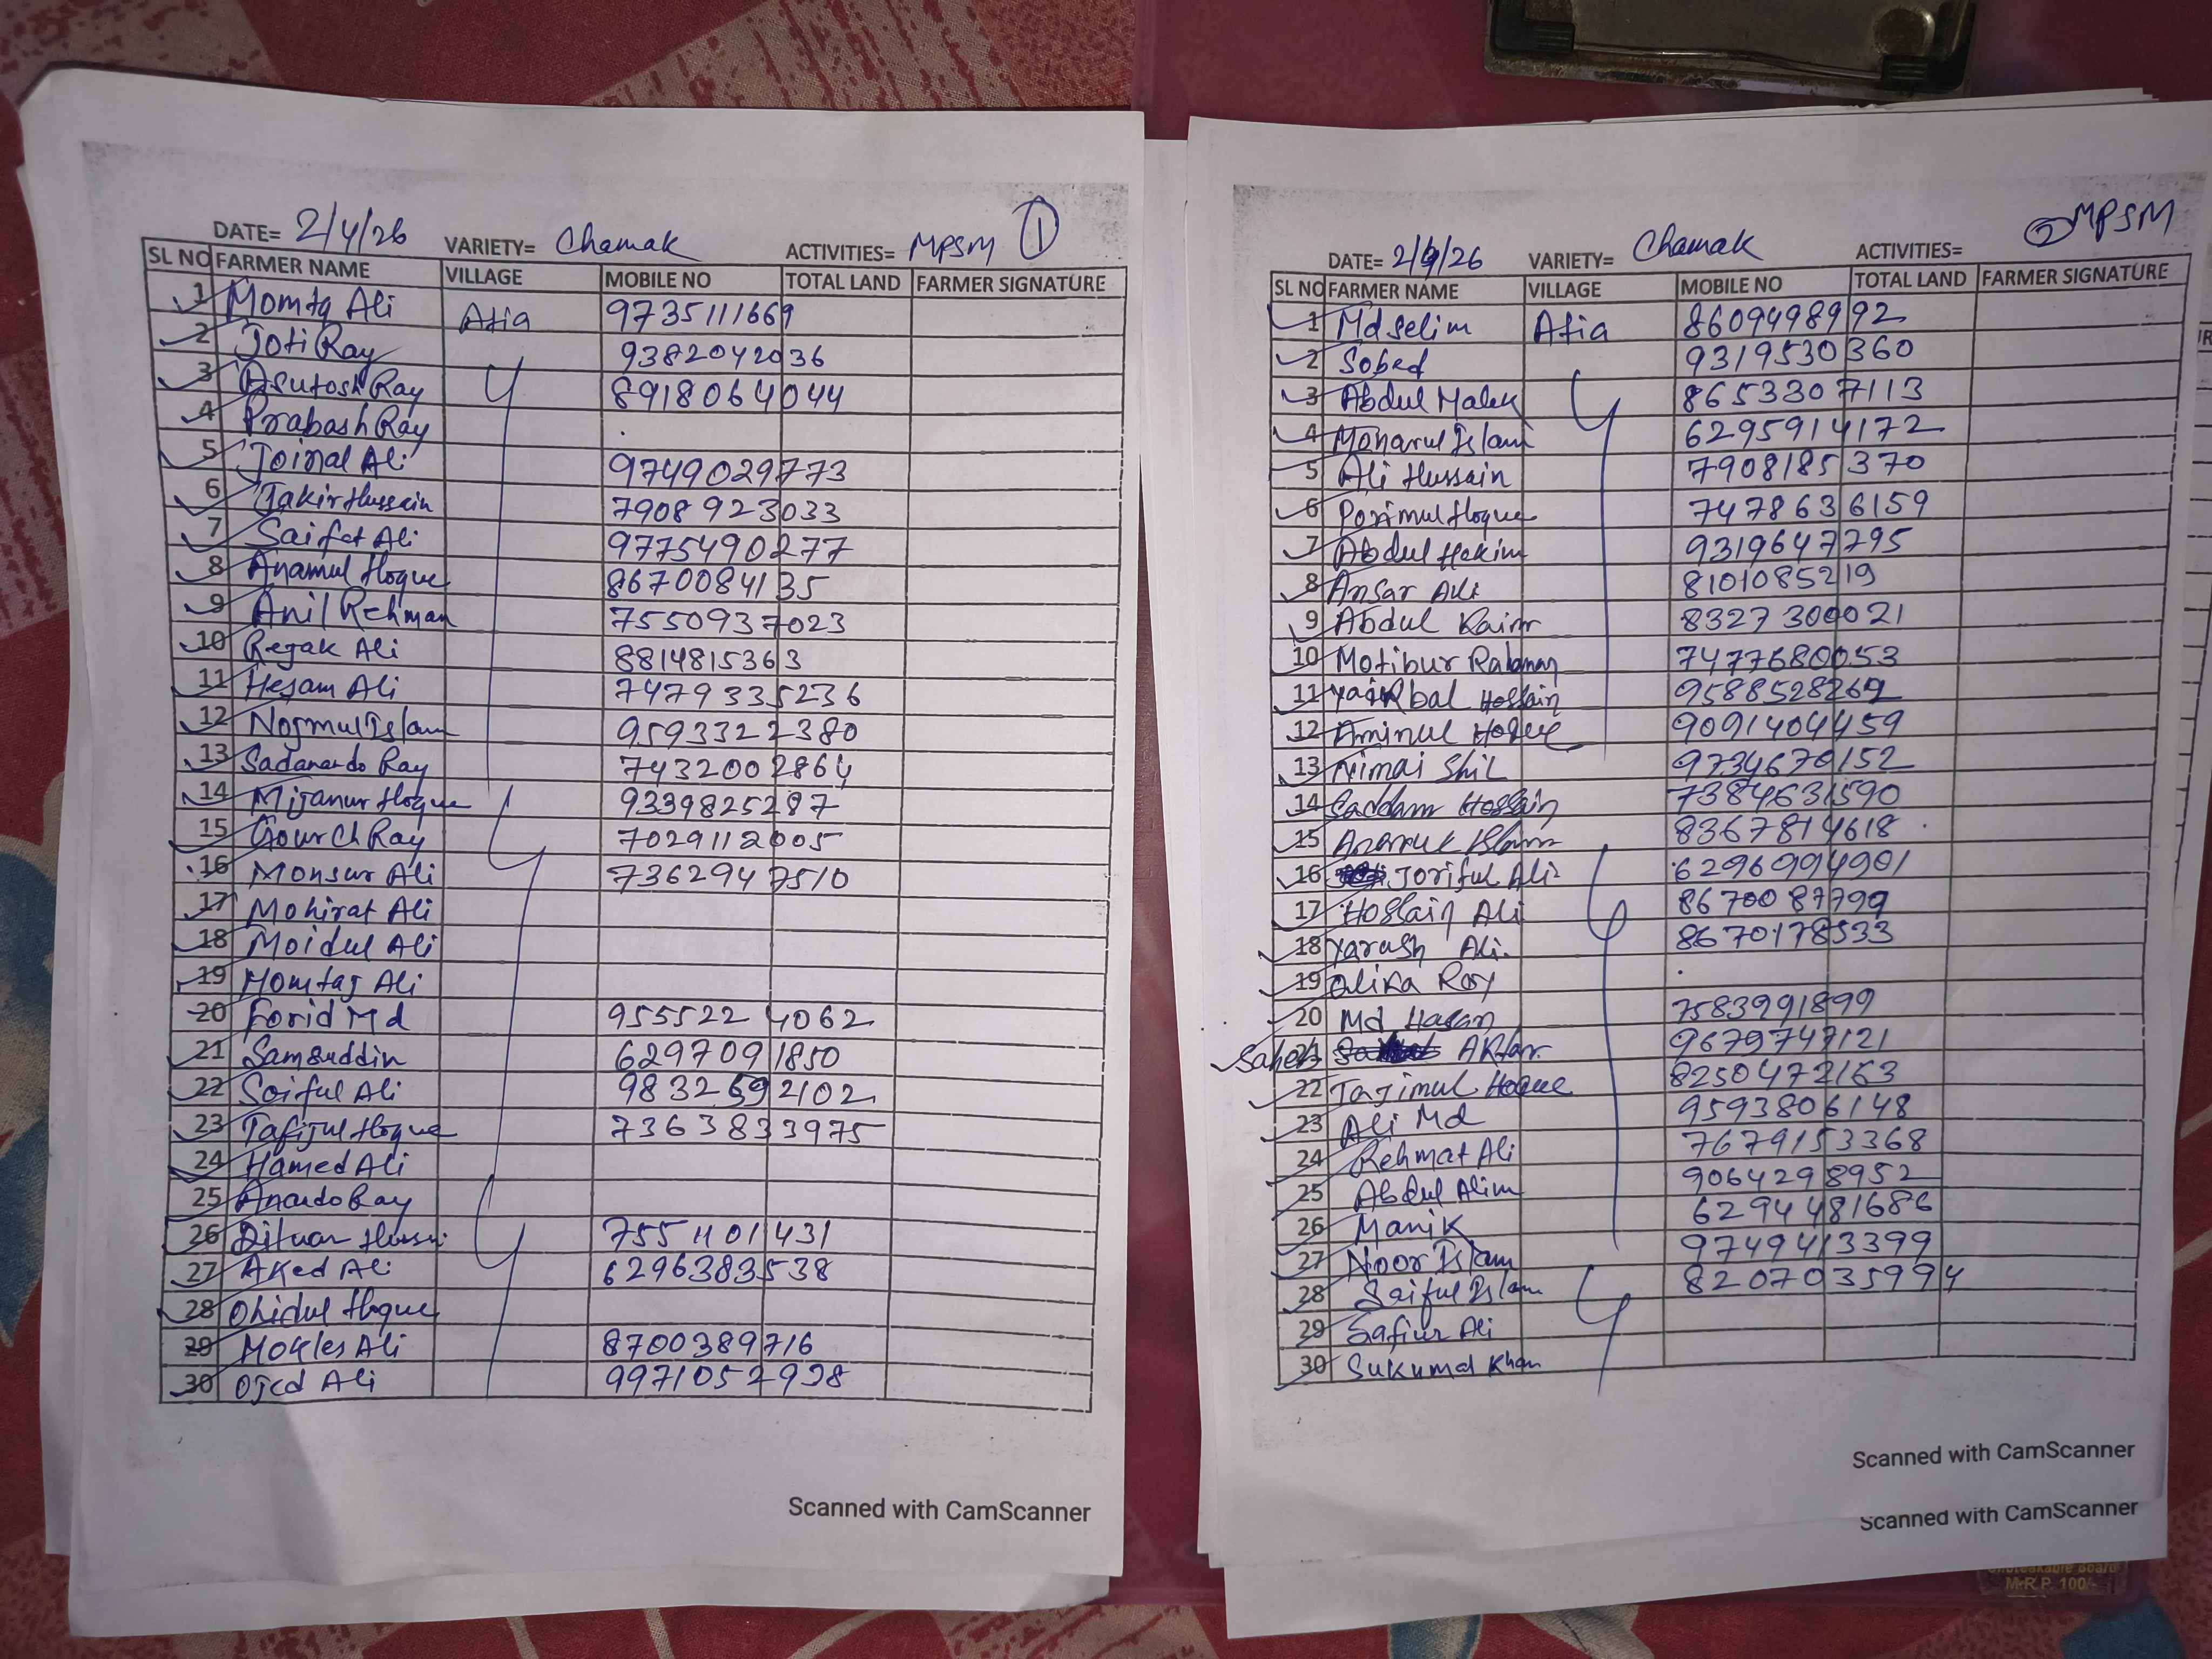 DATE= 2/4/26 VARIETY= Chamak ACTIVITIES= MPSM 1
SL NO FARMER NAME VILLAGE MOBILE NO TOTAL LAND FARMER SIGNATURE
1 Momtq Ali Atia 9735111669
2 Joti Ray 9382042036
3 Asutosh Ray 8918064044
4 Prabash Ray
5 Joinal Ali 9749029773
6 Jakir Hussain 7908923033
7 Saifet Ali 9775490277
8 Anamul Hoque 8670084135
9 Anil Rehman 7550937023
10 Rejak Ali 8814815363
11 Hesam Ali 7479335236
12 Nojmul Islam 9593322380
13 Sadanando Ray 7432002864
14 Mijanur Hoque 9339825297
15 Gour Ch Ray 7029112005
16 Monsur Ali 7362947510
17 Mohirat Ali
18 Moidul Ali
19 Momtaj Ali
20 Forid Md 9555224062
21 Samsuddin 6297091850
22 Soiful Ali 9832592102
23 Tafijul Hoque 7363833975
24 Hamed Ali
25 Anando Ray
26 Ditwar 7551101431
27 Aked Ali 6296383538
28 Ohidul Hoque
29 Mokles Ali 8700389716
30 Ojed Ali 9971052998
Scanned with CamScanner
DATE= 2/4/26 VARIETY= Chamak ACTIVITIES= 2 MPSM
SL NO FARMER NAME VILLAGE MOBILE NO TOTAL LAND FARMER SIGNATURE
1 Md Selim Atia 8609498992
2 Sobed 9319530360
3 Abdul Malek 8653307113
4 Monarul Islam 6295914172
5 Ali Hussain 7908185370
6 Porimul Hoque 7478636159
7 Abdul Hekim 9319647795
8 Ansar Ali 8101085219
9 Abdul Kaim 8327300021
10 Motibur Rahman 7477680053
11 Hossain
12 Aminul Hoque 9091404459
13 Nimai Shil 9734670152
14 Saddam Hossain 7384631590
15 8367814618
16 Joriful Ali 6296994901
17 Hossain Ali 8670087799
18 Yarush Ali. 8670178533
19 Olika Roy
20 Md Hasan 7583991899
21 Saheb Aktar. 9679747121
22 Tajimul Hoque 8250472163
23 Ali Md 9593806148
24 Rehmat Ali 7679153368
25 Abdul Alim 9064298952
26 Manik 6294481686
27 Noor Islam 9749413399
28 Saiful Islam 8207035994
29 Safiur Ali
30 Sukumd Khan
Scanned with CamScanner
Scanned with CamScanner
M.R.P. 100/-